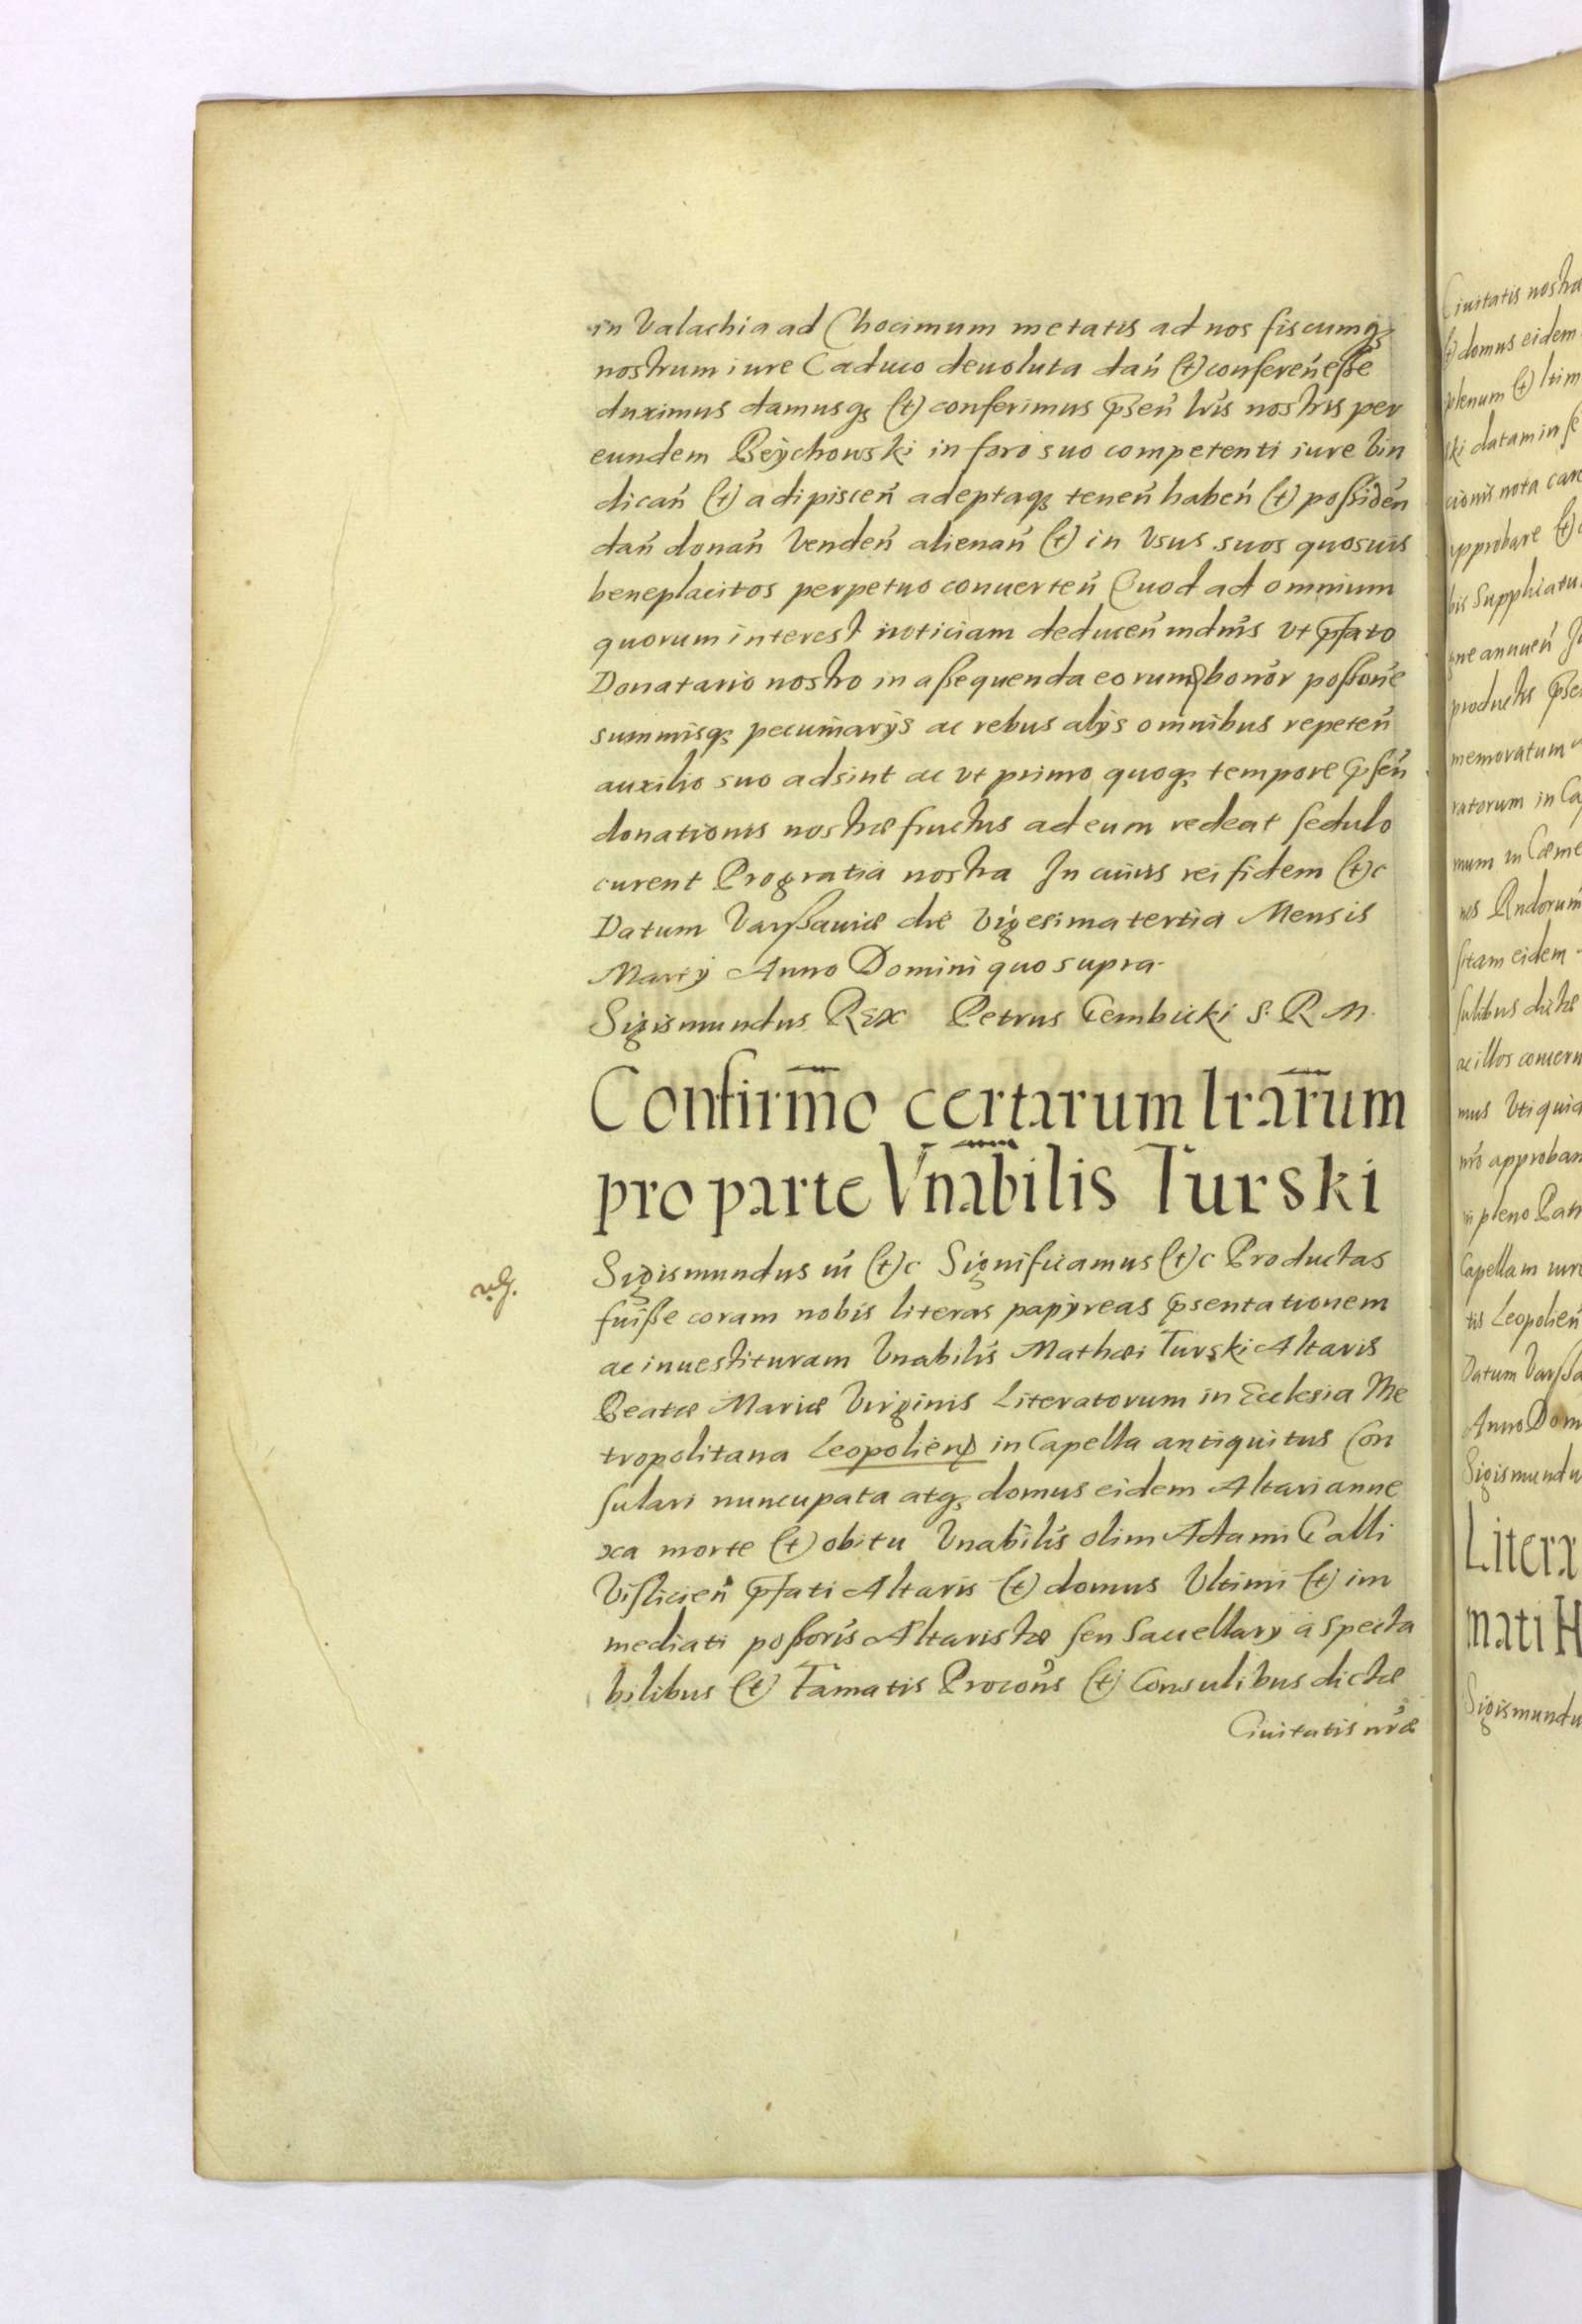 in Valachia ad Chocimum metatis ad nos fiscumq₃
nostrum iure Caduco deuoluta dan̄ (et) conferen̄ eße
duximus damusq₃ (et) conferimus p̄sen̄ lr̄is nostris per
eundem Beÿchowski in foro suo competenti iure Vin
dican̄ (et) adipiscen̄ adeptaq₃ tenen̄ haben̄ (et) poßiden̄
dan̄ donan̄ Venden̄ alienan̄ (et) in Vsus suos quosuis
beneplacitos perpetuo conuerten̄ Quod ad omnium
quorum interest noticiam deducen̄ mdm̄s vt p̄fato
Donatario nostro in aßequenda eorum bonor poßone
summisq₃ pecuniarÿs ac rebus alÿs omnibus repeten̄
auxilio suo adsint ac vt primo quoq₃ tempore p̄sen̄
donationis nostræ fructus ad eum redeat sedulo
curent Pro gratia nostra In cuius rei fidem (et)c
Datum Varßauiæ die Vigesima tertia Mensis
Martÿ Anno Domini quo supra.
Sigismundus REX Petrus Tembicki S. R M.
Confirmo̅ certarum lrar̅um
pro parte Vna̅bilis Turski
Sigismundus iii (et)c Significamus (et)c Productas
fuiße coram nobis literas papÿreas p̄sentationem
ac inuestituram Vnabilis Mathæi Turski Altaris
Beatæ Mariæ Virginis Literatorum in Ecclesia Me
tropolitana Leopolien̄ in Capella antiquitus Con
sulari nuncupata atq₃ domus eidem Altari anne
xa morte (et) obitu Vnabilis olim Adami Galli
Vislicien̄ p̄fati Altaris (et) domus Vltimi (et) im
mediati poßoris Altaristæ seu Sacellarÿ à specta
bilibus (et) Famatis Procons̄ (et) Consulibus dictæ
Ciuitatis nr̄æ
Ciuitatis nostra
(et) domus eidem
plenum (et)
ski datam in se
cionis nota can
approbare (et)
bis Supplicatu
gne annuen̄
productis p̄se
memoratum
ratorum in Ca
mum in Cæme
sitam eidem
sulibus dictæ
ac illos concern
mus Vti quid
nr̄o approban
in pleno
Capellam iure
tis Leopolien̄
Datum Varßa
Anno Dom
Sigismundu
Litera
mati H
Sigismundu